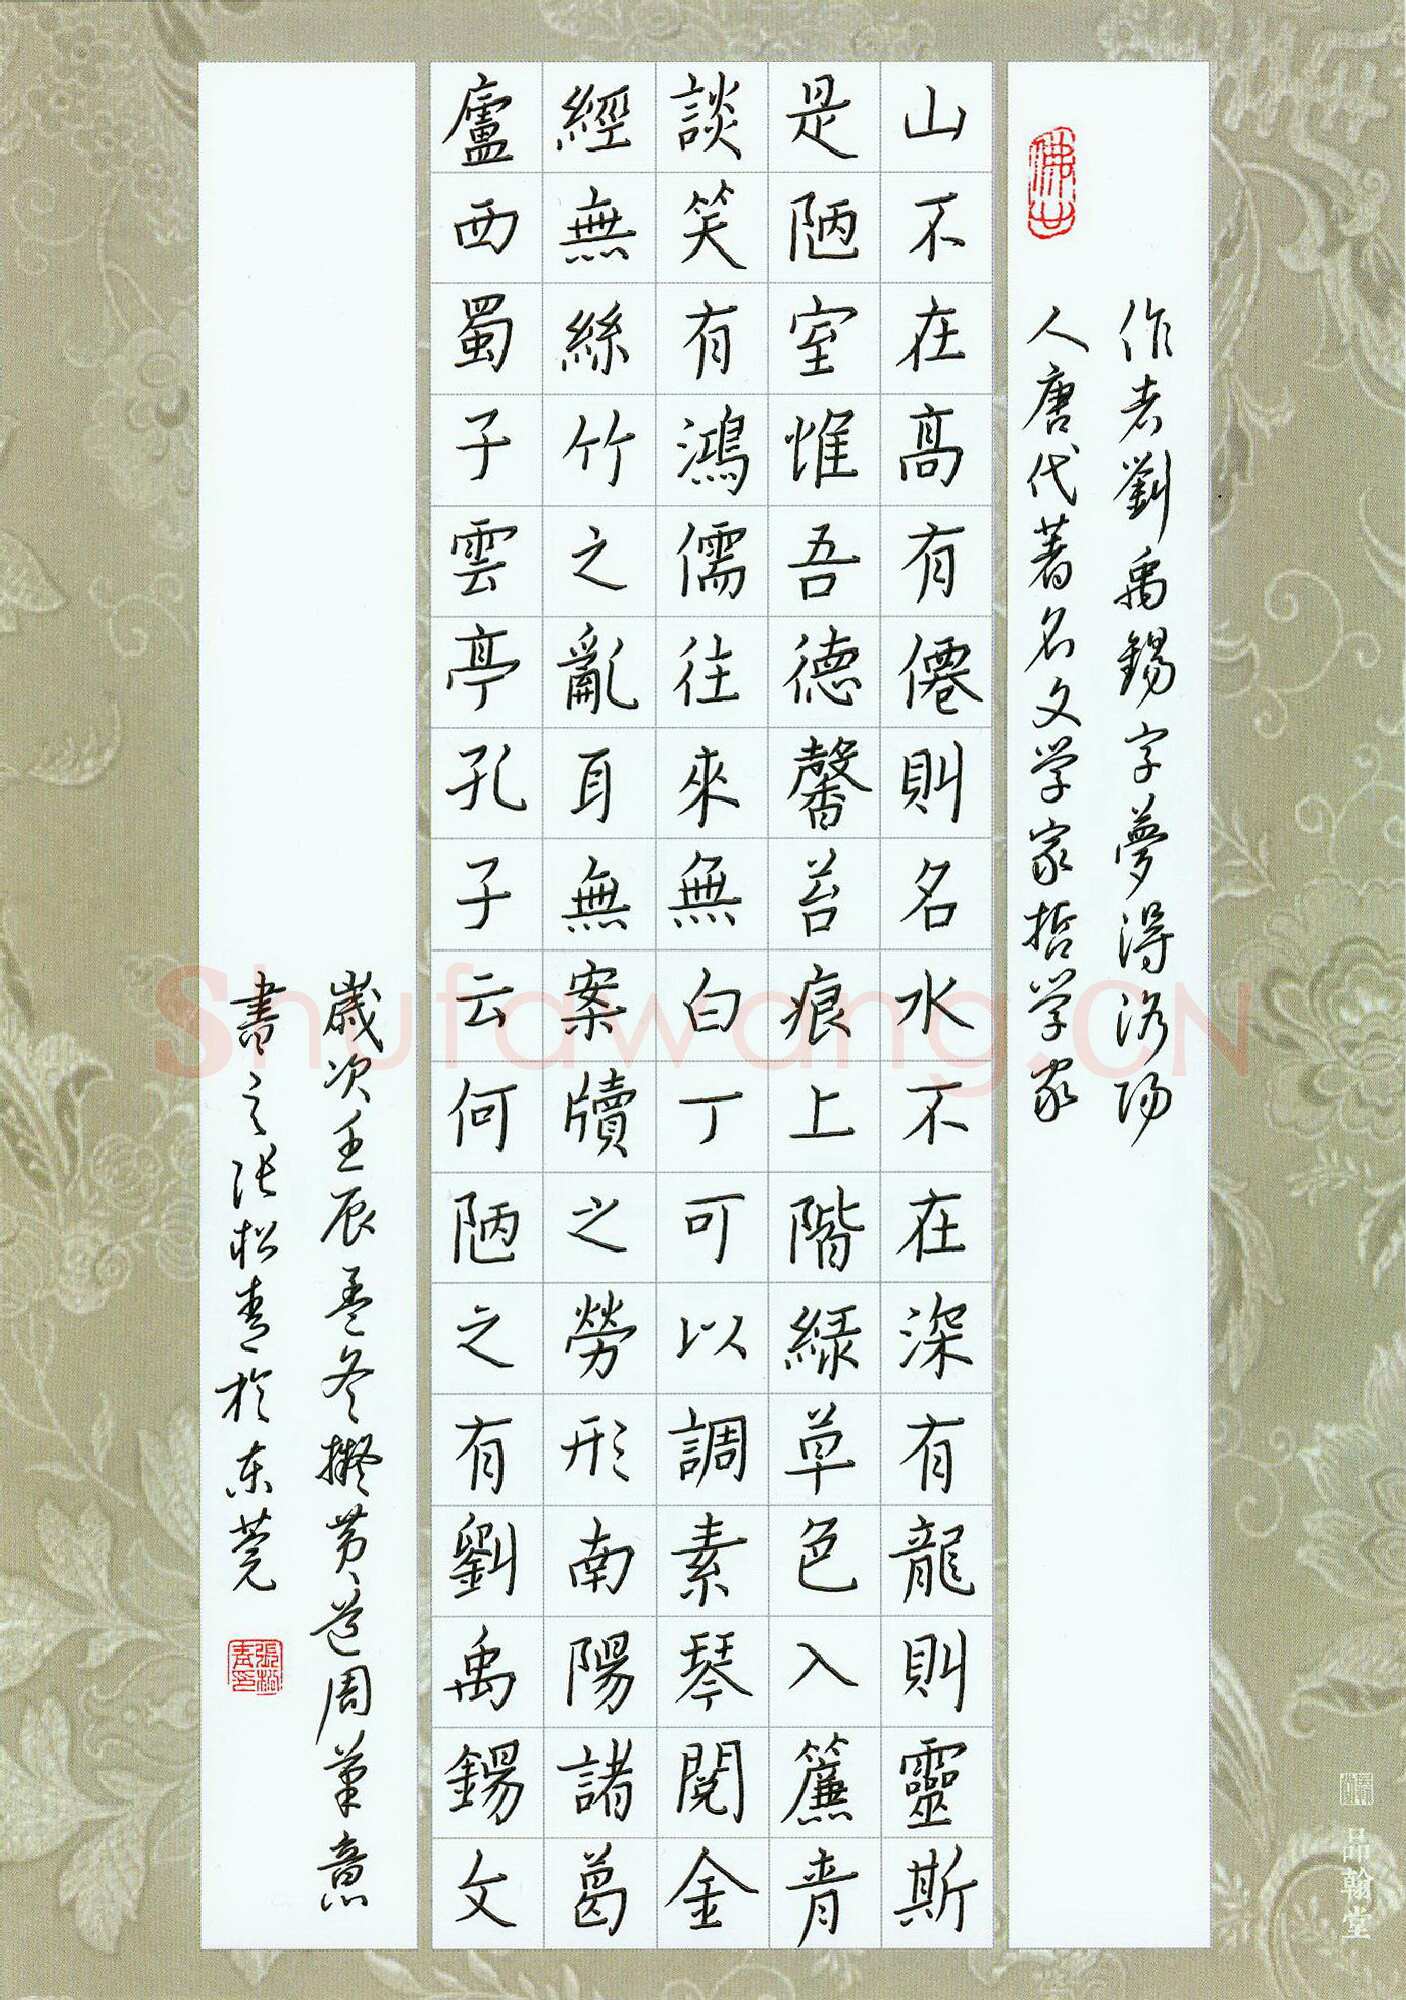 佛山
作者劉禹錫字夢得洛陽
人唐代著名文学家哲学家
山不在高有僊則名水不在深有龍則靈斯
是陋室惟吾德馨苔痕上階緑草色入簾青
談笑有鴻儒往來無白丁可以調素琴閱金
經無絲竹之亂耳無案牘之勞形南陽諸葛
廬西蜀子雲亭孔子云何陋之有劉禹錫文
歲次壬辰孟冬擬黄道周筆意
書之张松青於东莞
張松青印
品翰堂
Shufawang.CN